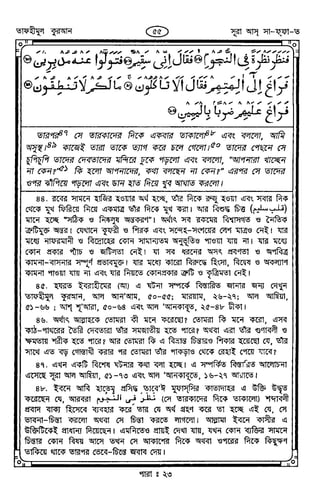 তাফহীমুল কুরআন
৫৫
সূরা আস্ সা-ফ্ফা-ত
فَنَظَرَ نَظْرَةً فِي النُّجُومِ ﴿﴾ فَقَالَ إِنِّي سَقِيمٌ ﴿﴾ فَتَوَلَّوْا عَنْهُ مُدْبِرِينَ ﴿﴾
فَرَاغَ إِلَى آلِهَتِهِمْ فَقَالَ أَلَا تَأْكُلُونَ ﴿﴾ مَا لَكُمْ لَا تَنْطِقُونَ ﴿﴾
فَرَاغَ عَلَيْهِمْ ضَرْبًا بِالْيَمِينِ ﴿﴾
তারপর৪৭ সে তারকাদের দিকে একবার তাকালো৪৮ এবং বললো, আমি
অসুস্থ।৪৯ কাজেই তারা তাকে ত্যাগ করে চলে গেলো।৫০ তাদের পেছনে সে
চুপিচুপি তাদের দেবতাদের মন্দিরে ঢুকে পড়লো এবং বললো, "আপনারা খাচ্ছেন
না কেন?৫১ কি হলো আপনাদের, কথা বলছেন না কেন?" এরপর সে তাদের
ওপর ঝাঁপিয়ে পড়লো এবং ডান হাত দিয়ে খুব আঘাত করলো।
৪৪. রবের সামনে হাজির হওয়ার অর্থ হচ্ছে, তাঁর দিকে রুজু হওয়া এবং সবার দিক
থেকে মুখ ফিরিয়ে নিয়ে একমাত্র তাঁর দিকে মুখ করা। আর বিশুদ্ধ চিত্ত (قلب سليم)
মানে হচ্ছে "সঠিক ও নিষ্কলুষ অন্তকরণ"। অর্থাৎ সব রকমের বিশ্বাসগত ও নৈতিক
ত্রুটিমুক্ত অন্তর। যেখানে কুফরী ও শিরক এবং সন্দেহ-সংশয়ের লেশ মাত্রও নেই। যার
মধ্যে নাফরমানী ও বিদ্রোহের কোন সামান্যতম অনুভূতিও পাওয়া যায় না। যার মধ্যে
কোন প্রকার প্যাঁচ ও জটিলতা নেই। যা সব ধরনের অসৎ প্রবণতা ও অপবিত্র
কামনা-বাসনার সম্পূর্ণ প্রভাবমুক্ত। যার মধ্যে কারো বিরুদ্ধে হিংসা, বিদ্বেষ ও অকল্যাণ
কামনা পাওয়া যায় না এবং যার নিয়তে কোনপ্রকার ত্রুটি ও কৃত্রিমতা নেই।
৪৫. হযরত ইবরাহীমের (আ) এ ঘটনা সম্পর্কে বিস্তারিত জানার জন্য দেখুন
তাফহীমুল কুরআন, আল আন'আম, ৫০-৫৫; মারয়াম, ২৬-২৭; আল আম্বিয়া,
৫১-৬৬ ; আশ্ শূ'আরা, ৫০-৬৪ এবং আল 'আনকাবূত, ২৫-৪৮ টীকা।
৪৬. অর্থাৎ আল্লাহকে তোমরা কী মনে করেছো? তোমরা কি মনে করো, এসব
কাঠ-পাথরের তৈরি দেবতারা তাঁর সমজাতীয় হতে পারে? অথবা এরা তাঁর গুণাবলী ও
ক্ষমতায় শরীক হতে পারে? আর তোমরা কি এ বিভ্রান্ত চিন্তারও শিকার হয়েছো যে, তাঁর
সাথে এত বড় গোস্তাখী করার পর তোমরা তাঁর পাকড়াও থেকে রেহাই পেয়ে যাবে?
৪৭. এখন একটি বিশেষ ঘটনার কথা বলা হচ্ছে। এ সম্পর্কিত বিস্তারিত আলোচনা
এসেছে সূরা আল আম্বিয়া, ৫১-৭৩ এবং আল 'আনকাবূতে, ১৬-২৭ আয়াতে।
৪৮. ইবনে আবি হাতেম প্রসিদ্ধ তাবে'ঈ মুফাস্সির কাতাদাহর এ উক্তি উদ্ধৃত
করেছেন যে, আরবরা نظر فى النجوم (সে তারকাদের দিকে তাকালো) শব্দাবলী
প্রবাদ বাক্য হিসেবে ব্যবহার করে তার যে অর্থ গ্রহণ করে তা হচ্ছে এই যে, সে
ভাবনা-চিন্তা করলো অথবা সে চিন্তা করতে লাগলো। আল্লামা ইবনে কাসীর এ
উক্তিটিকেই প্রাধান্য দিয়েছেন। এমনিতেও প্রায়ই দেখা যায়, যখন কোন ব্যক্তির সামনে
চিন্তার কোন বিষয় আসে তখন সে আকাশের দিকে অথবা ওপরের দিকে কিছুক্ষণ
তাকিয়ে থাকে তারপর ভেবে-চিন্তে জবাব দেয়।
পারা : ২৩